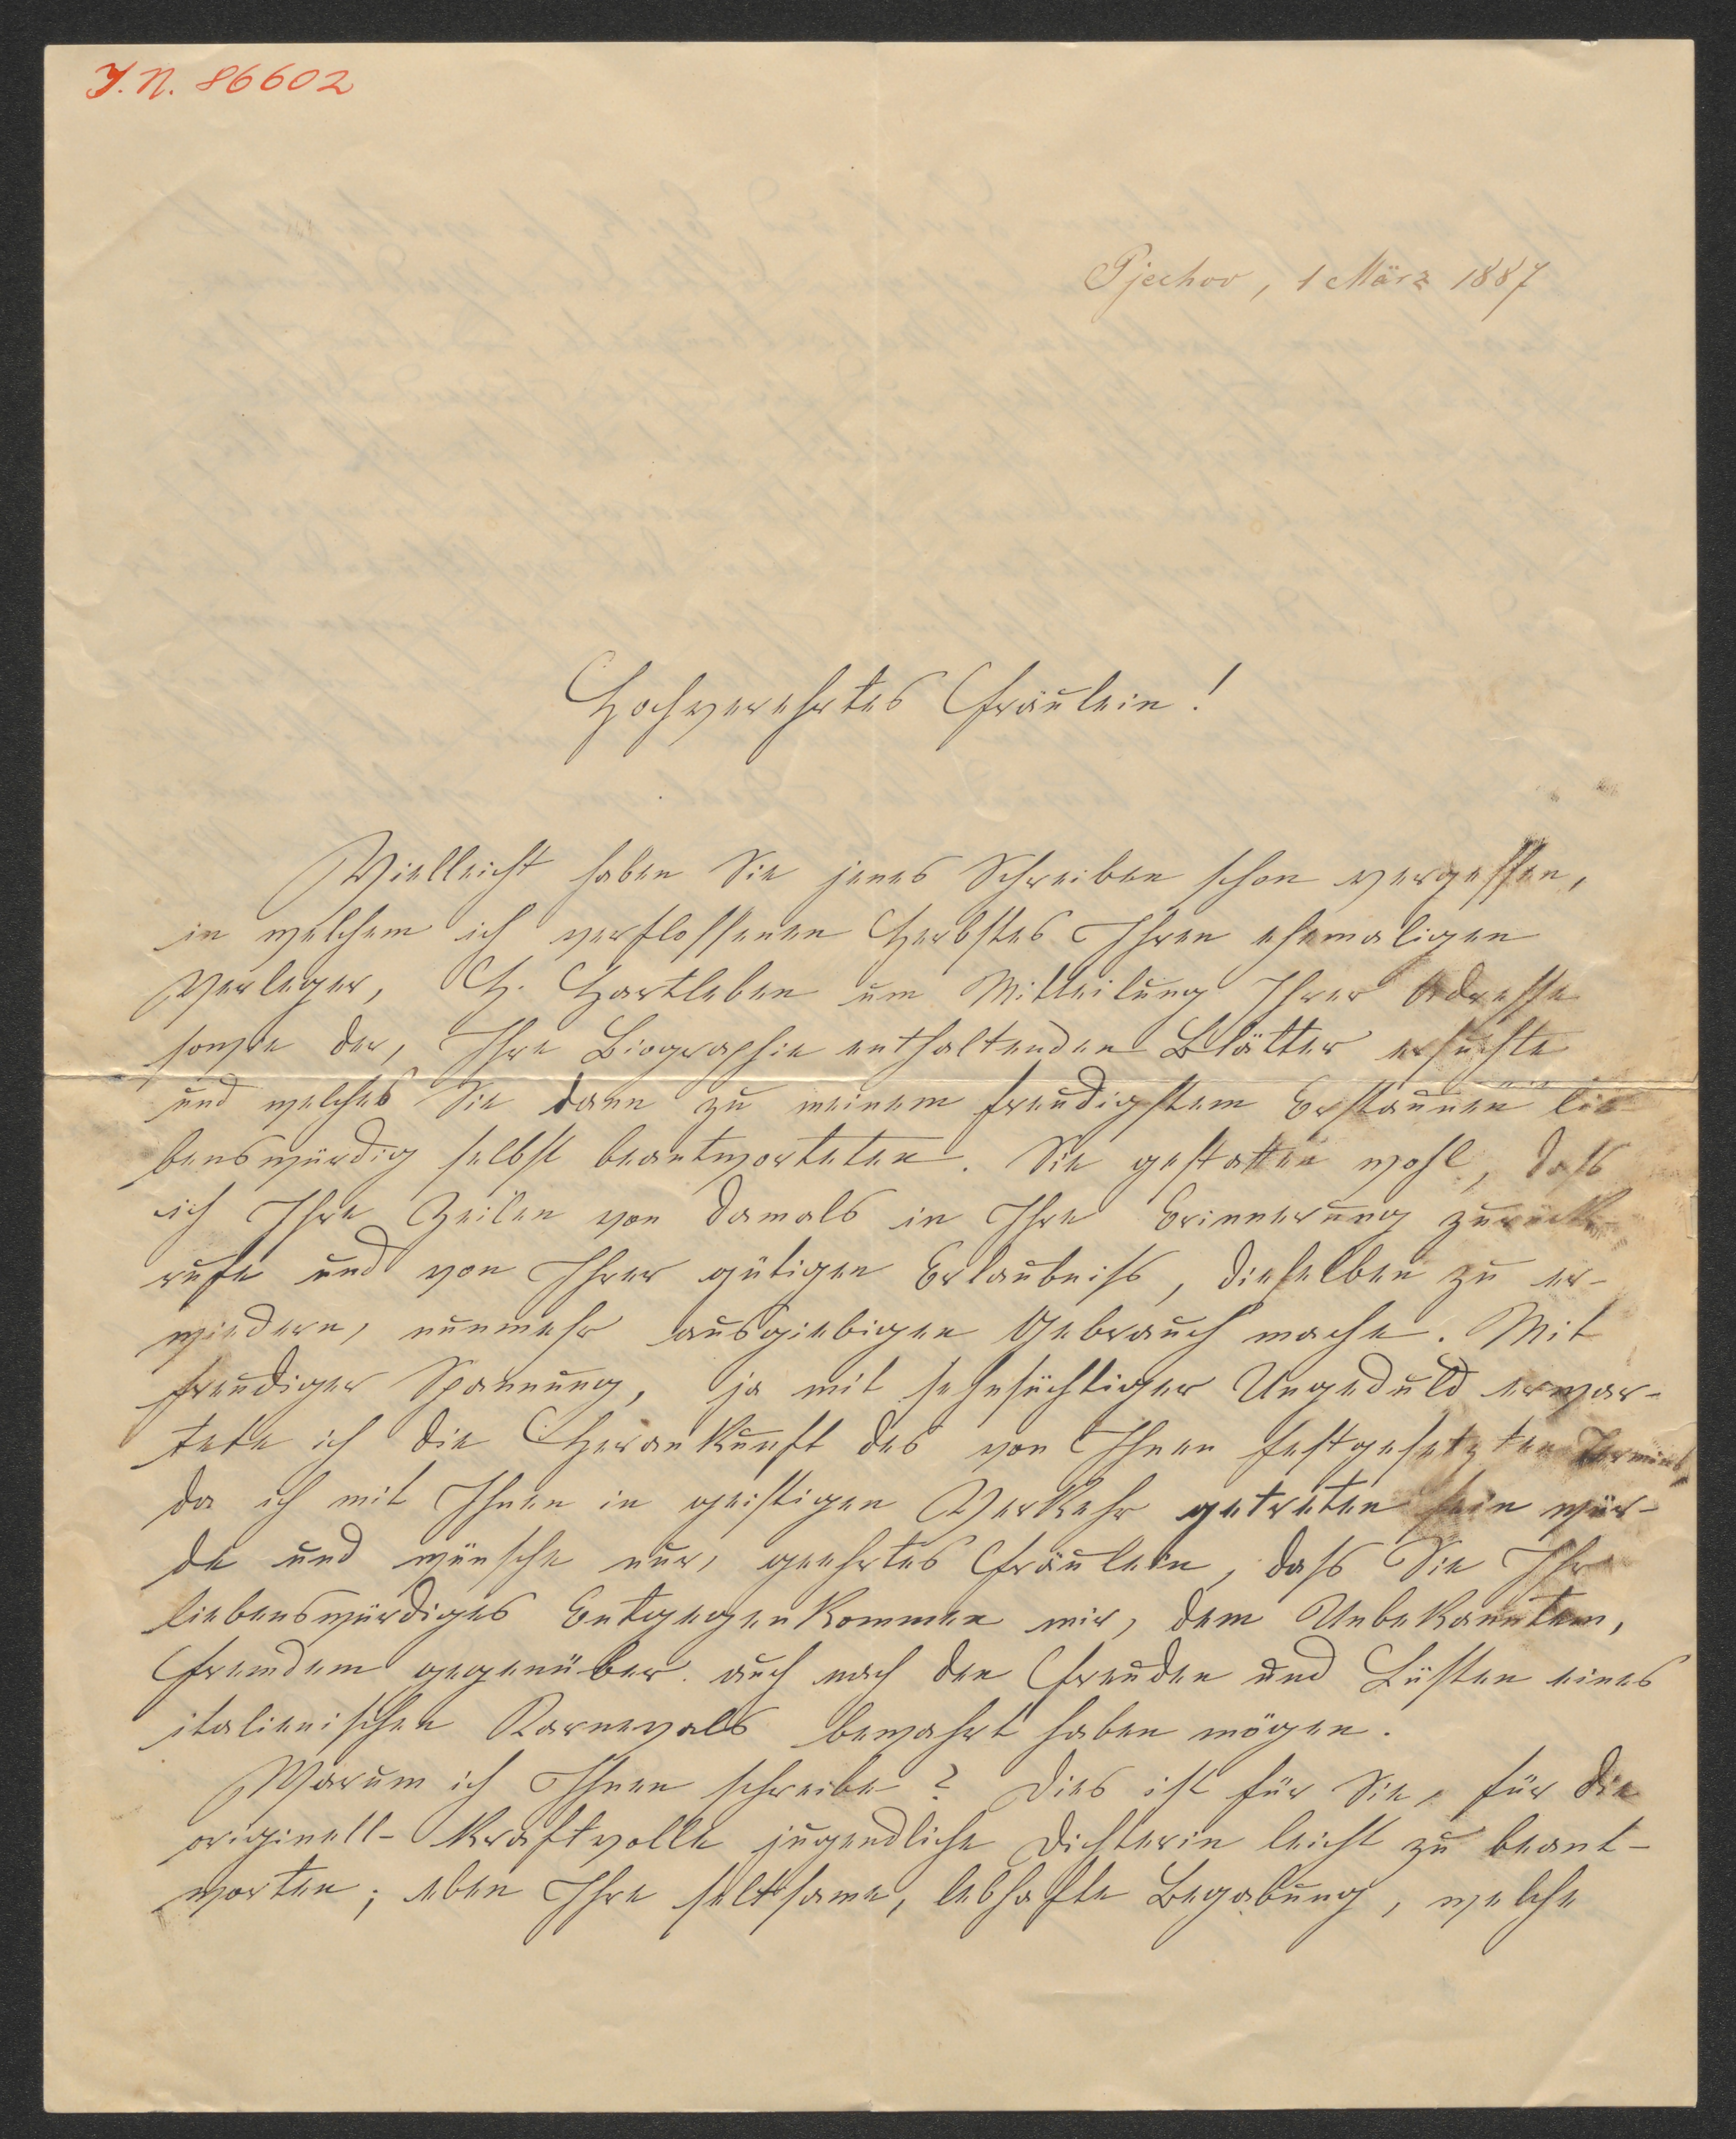 J. N. 86602
Pjechov, 1 März 1887
Hochverehrtes Fräulein!
Vielleicht haben Sie jenes Schreiben schon vergessen,
in welchem ich verflossenen Herbstes Ihren ehemaligen
Verleger, H. Hartleben um Mitteilung Ihrer Adresse
sowie der, Ihre Biographie enthaltenden Blätter ersuchte
und welches Sie dann zu meinem freudigstem Erstaunen lie-
benswürdig selbst beantworteten. Sie gestatten wohl, dass
ich Ihre Zeilen von damals in Ihre Erinnerung zurück-
rufe und von Ihrer gütigen Erlaubniss, dieselben zu er-
wiedern, nunmehr ausgiebigen Gebrauch mache. Mit
freudiger Spannung, ja mit sehnsüchtiger Ungeduld erwar-
tete ich die Herankunft des von Ihnen festgesetzten Termines,
da ich mit Ihnen in geistigen Verkehr getreten sein wür-
de und wünsche nur, geehrtes Fräulein, dass Sie Ihr
liebenswürdiges Entgegenkommen mir, dem Unbekannten,
Fremdem gegenüber auch nach den Freuden und Lüsten eines
italienischen Karnevals bewahrt haben mögen.
Warum ich Ihnen schreibe? Dies ist für Sie, für die
originell-kraftvolle jugendliche Dichterin leicht zu beant-
worten; eben Ihre seltsame, lebhafte Begabung, welche